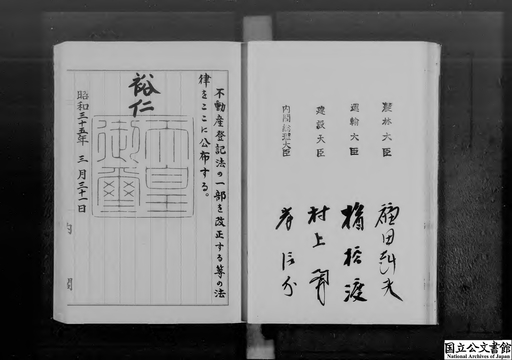 農林大臣 福田赳夫
運輸大臣 楢橋渡
建設大臣 村上勇
内閣総理大臣 岸信介
不動産登記法の一部を改正する等の法
律をここに公布する。
裕仁
天皇
御璽
昭和三十五年 三月三十一日
内閣
国立公文書館
National Archives of Japan